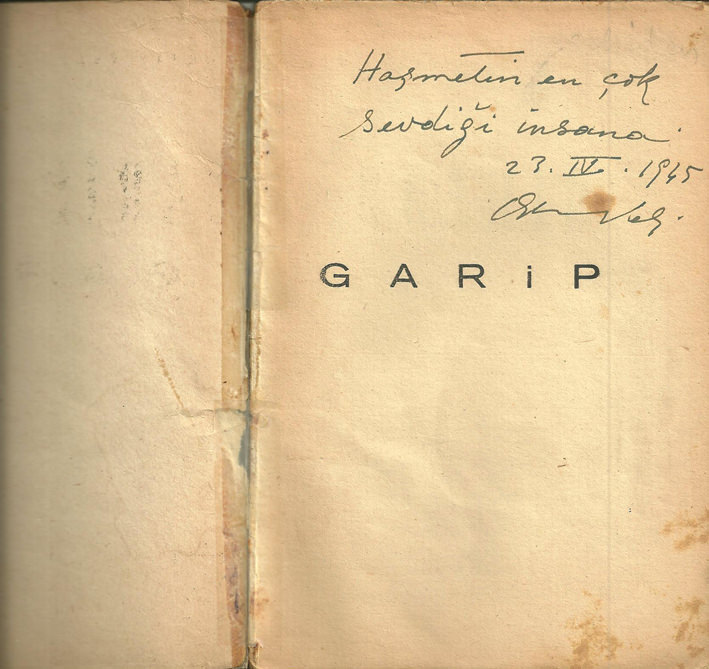 Haşmetin en çok
sevdiği insana
23. IV. 1945
Orhan Veli
GARiP